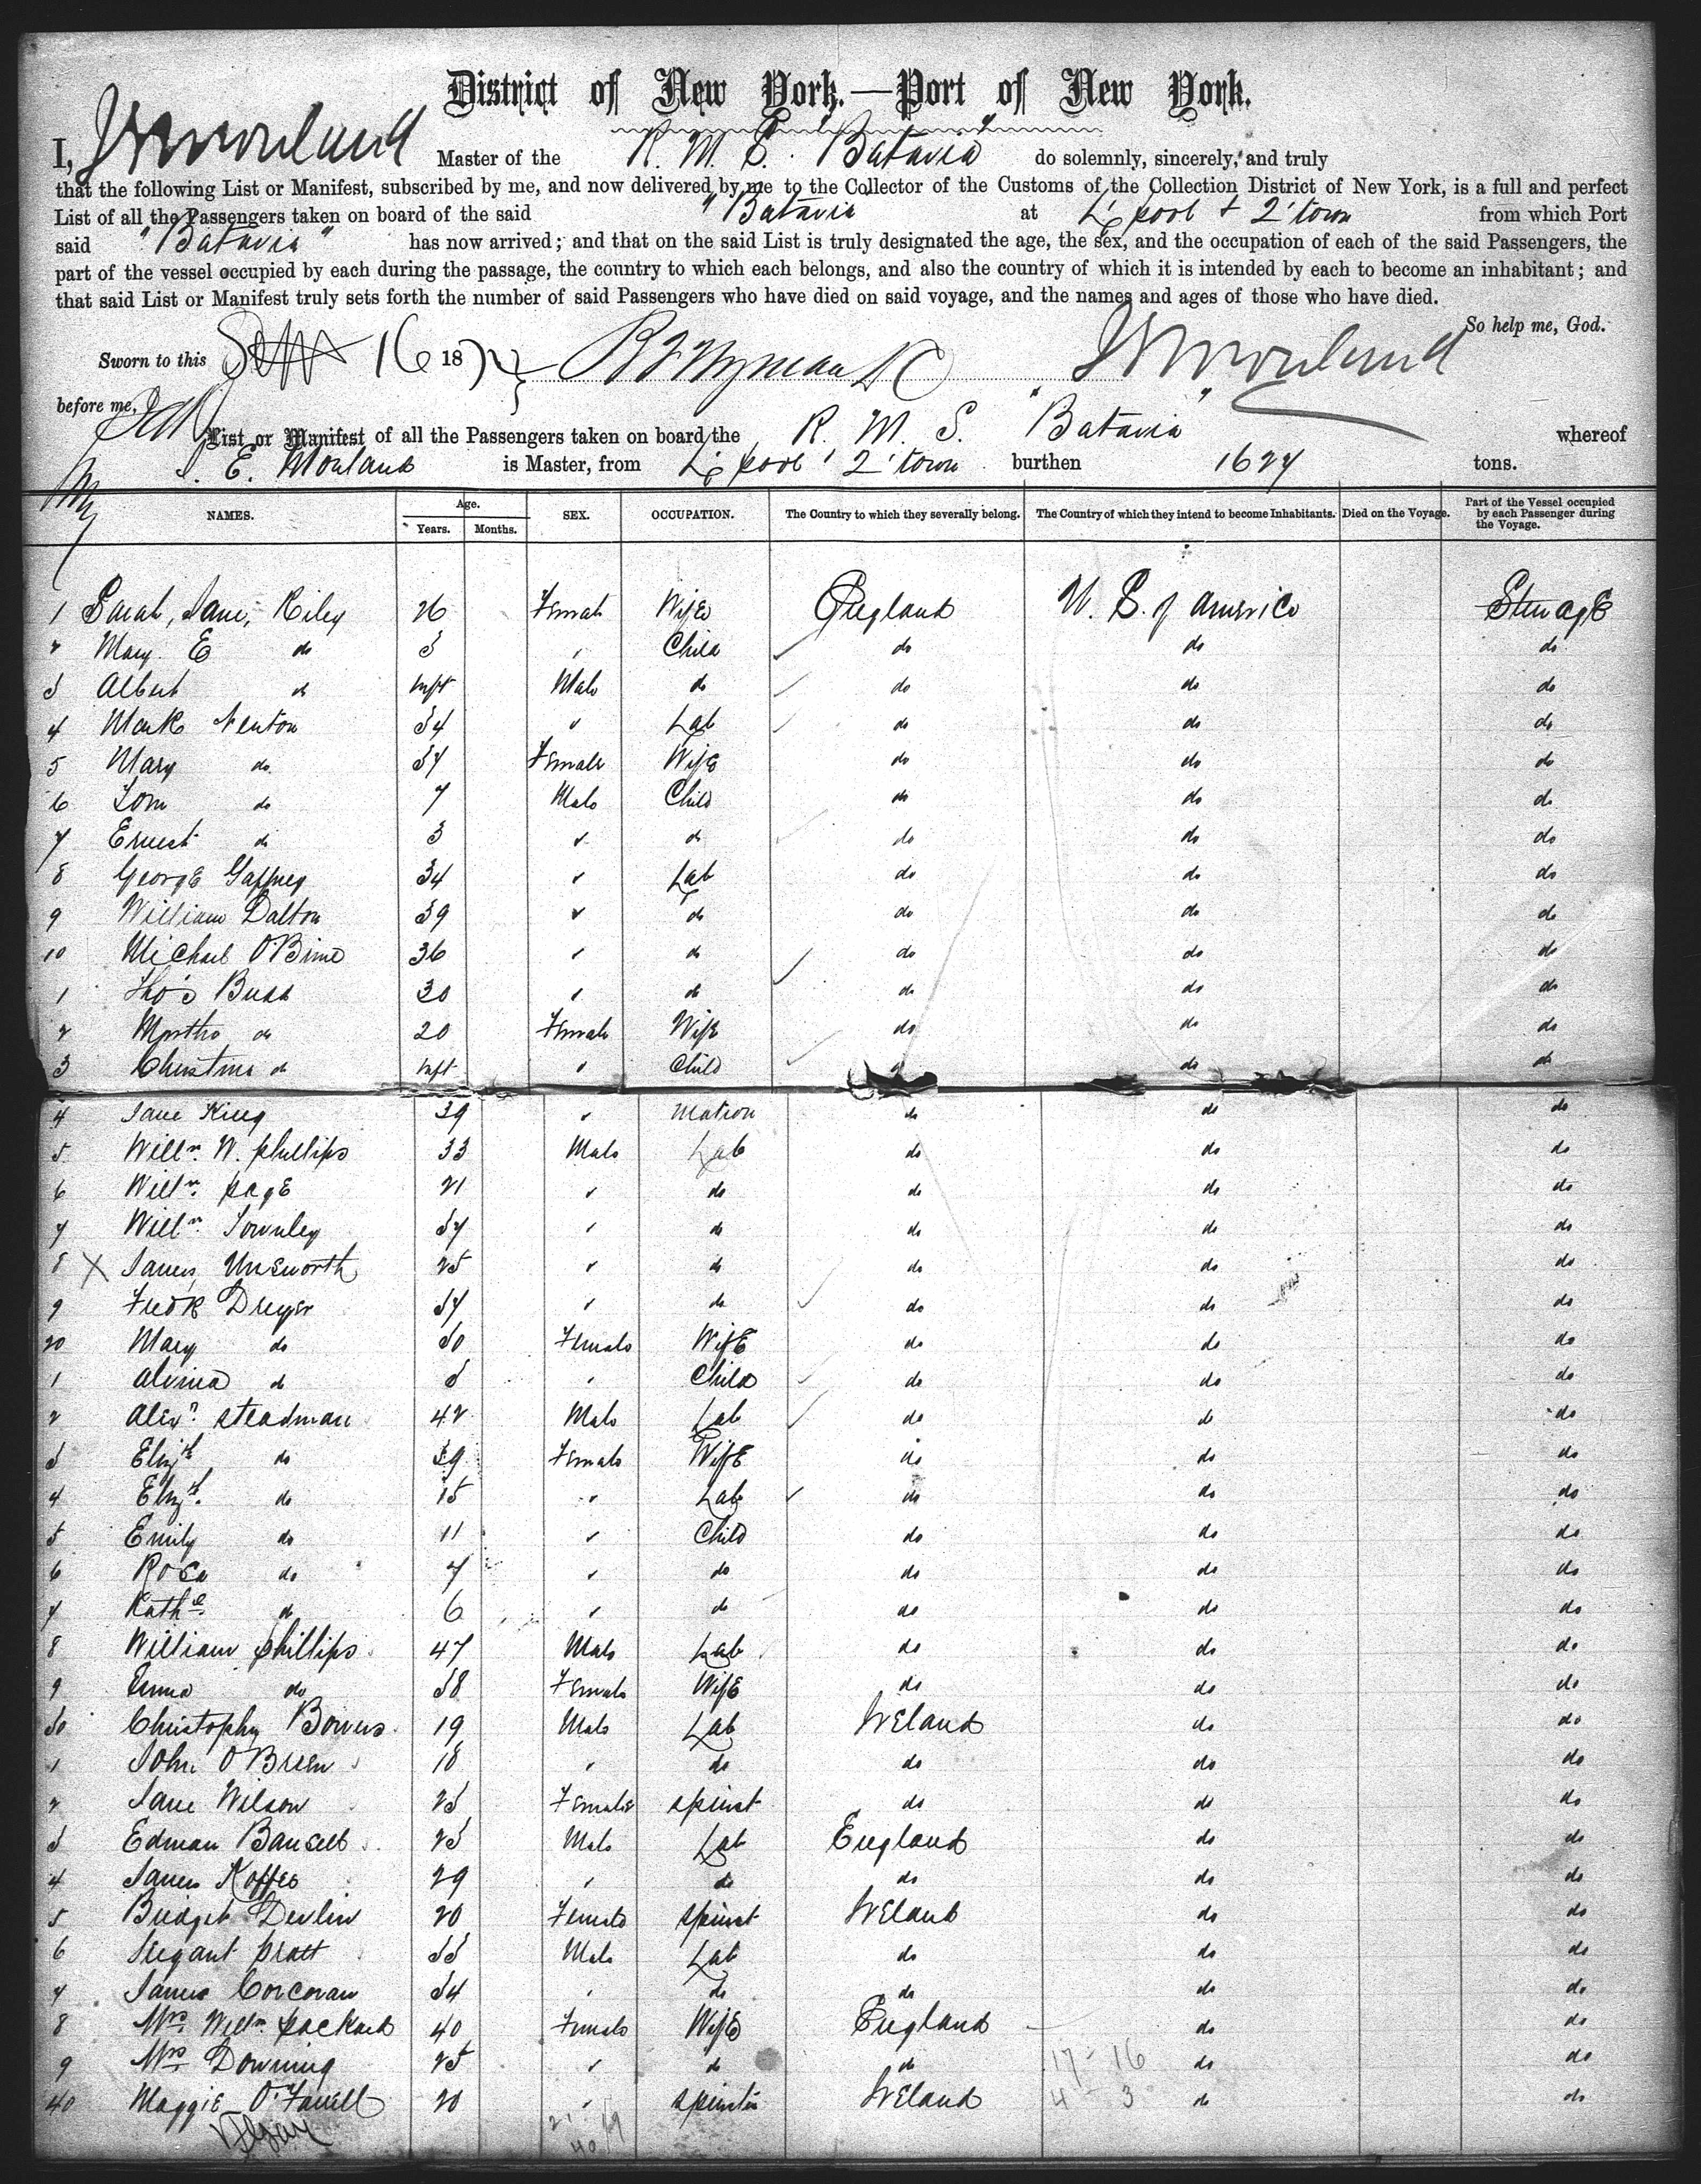 District of New York.—Port of New York.
I, Master of the R. M. S. "Batavia" do solemnly, sincerely, and truly
that the following List or Manifest, subscribed by me, and now delivered by me to the Collector of the Customs of the Collection District of New York, is a full and perfect
List of all the Passengers taken on board of the said "Batavia at L'pool + 2'town from which Port
said "Batavia" has now arrived; and that on the said List is truly designated the age, the sex, and the occupation of each of the said Passengers, the
part of the vessel occupied by each during the passage, the country to which each belongs, and also the country of which it is intended by each to become an inhabitant; and
that said List or Manifest truly sets forth the number of said Passengers who have died on said voyage, and the names and ages of those who have died.
So help me, God.
Sworn to this 16 18
before me,
List or Manifest of all the Passengers taken on board the R. M. S. "Batavia" whereof
E. Mouland is Master, from L'pool + 2'town burthen 1627 tons.
NAMES. Age. SEX. OCCUPATION. The Country to which they severally belong. The Country of which they intend to become Inhabitants. Died on the Voyage. Part of the Vessel occupied by each Passenger during the Voyage.
Years. Months.
1 Sarah, Jane, Riley 26 Female Wife England U. S. of America Steerage
2 Mary E do 3 " Child do do do
3 Albert do Inft Male do do do do
4 Mark Newton 34 " Lab do do do
5 Mary do 37 Female Wife do do do
6 Tom do 7 Male Child do do do
7 Ernest do 3 " do do do do
8 George Gaffney 34 " Lab do do do
9 William Dalton 39 " do do do do
10 Michael 36 " do do do do
1 Tho's 30 " do do do do
2 Martha do 20 Female Wife do do do
3 Christina do Inft " Child do do do
4 Jane King 39 " Matron do do do
5 Willm W. Phillips 33 Male Lab do do do
6 Willm Page 21 " do do do do
7 Willm Townley 37 " do do do do
8 X James Unsworth 25 " do do do do
9 Fredk Dreyer 37 " do do do do
20 Mary do 30 Female Wife do do do
1 Alvina do 3 " Child do do do
2 Alexr Steadman 42 Male Lab do do do
3 Elizth do 39 Female Wife do do do
4 Elizth do 15 " Lab do do do
5 Emily do 11 " Child do do do
6 Rosa do 7 " do do do do
7 Kathe do 6 " do do do do
8 William Phillips 47 Male Lab do do do
9 Emma do 38 Female Wife do do do
30 Christophr Bowers 19 Male Lab Ireland do do
1 John O'Brien 18 " do do do do
2 Jane Wilson 23 Female Spinst do do do
3 Edman 23 Male Lab England do do
4 James 29 " do do do do
5 Bridget Devlin 20 Female Spinst Ireland do do
6 Pratt 33 Male Lab do do do
7 James Corcoran 34 " do do do do
8 Mrs Willm Packard 40 Female Wife England do do
9 Mrs Downing 25 " do do do do
17 - 16
40 Maggie O'Farrell 20 " Spinster Ireland do do
4 - 3